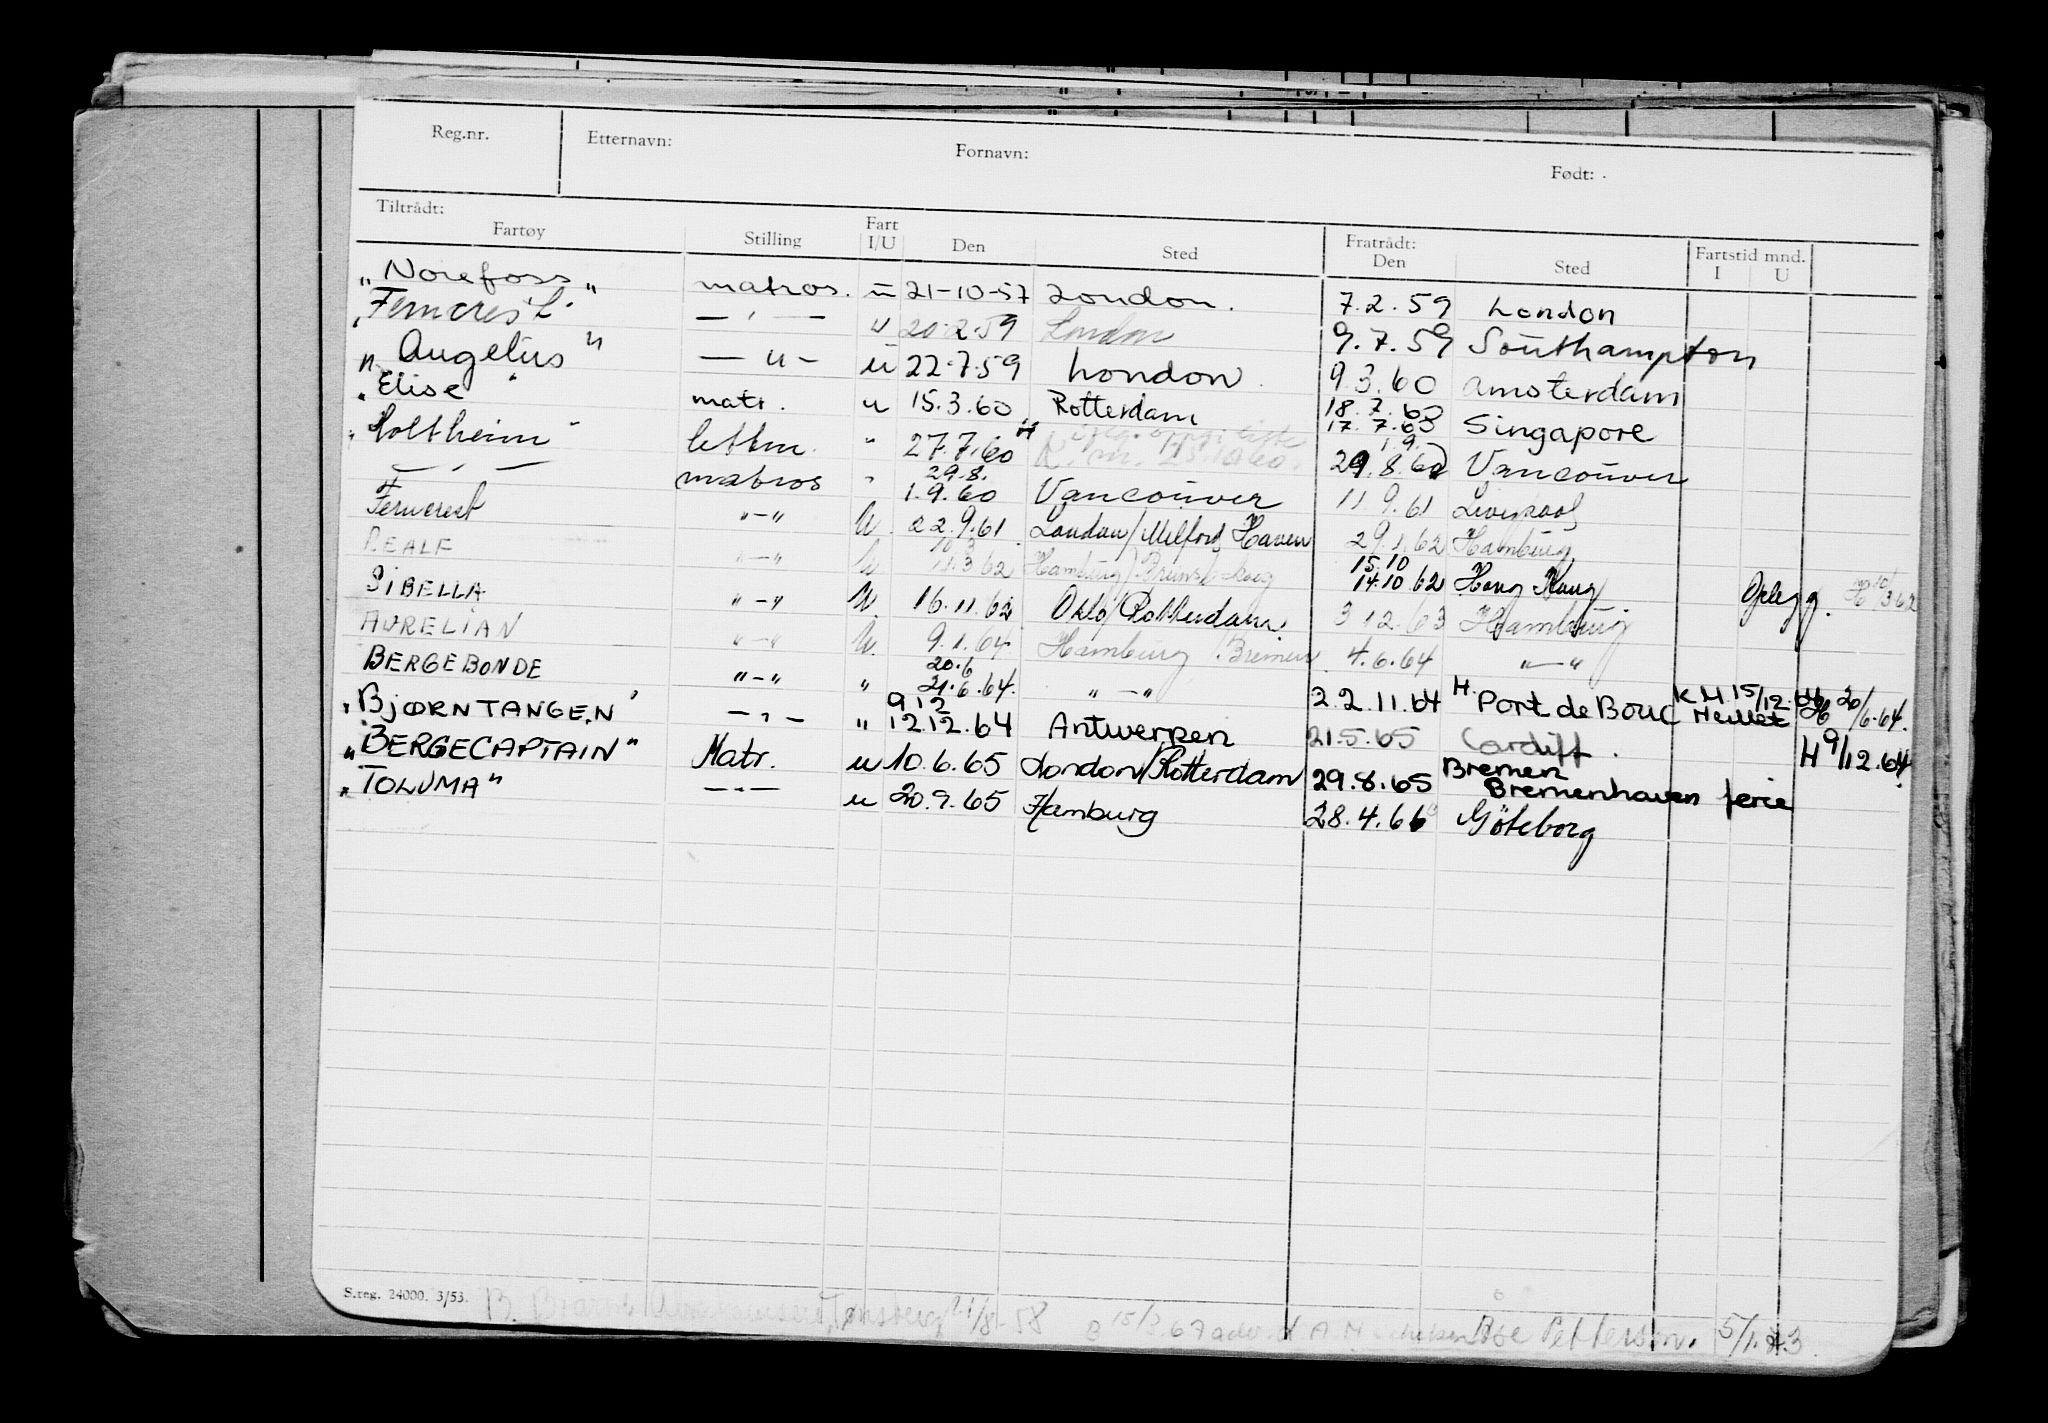 Reg.nr. Etternavn: Fornavn: Født:
Tiltrådt: Fratrådt: Fartstid mnd.
Fartøy Stilling Fart I/U Den Sted Den Sted I U
"Norefoss" matros. u 21-10-57 London. 7.2.59 London
"Ferncrest" — " — u 20.2.59 London 9.7.59 Southampton
"Angelus" — " — u 22.7.59 London. 9.3.60 Amsterdam
"Elise" matr. u 15.3.60 Rotterdam 18.7.60 17.7.60 Singapore
"Holtheim" lettm. " 27.7.60 1.9. 29.8.60 Vancouver
— " — matros " 29.8. 1.9.60 Vancouver 11.9.61 Liverpool
Ferncrest "-" U. 22.9.61 London/Milford Haven 29.1.62 Hamburg
REALF "-" U. 10.3 11.3.62 Hamburg/ 15.10 14.10.62 Hong Kong Opplegg.
SIBELLA "-" U. 16.11.62 Oslo/Rotterdam. 3.12.63 Hamburg.
AURELIAN "-" U. 9.1.64. Hamburg/Bremen. 4.6.64 "-"
BERGEBONDE "-" " 20.6 21.6.64. "-" 22.11.64 H. Port de Bouc K.M 15/12.64 H 20/6.64.
"BJØRNTANGEN" — " — " 9 12 12.12.64 Antwerpen 21.5.65 Cardiff. H 9/12.64
"BERGECAPTAIN" Matr. u 10.6.65 London/Rotterdam 29.8.65 Bremen Bremenhaven ferie
"TOLUMA" — " — u 20.9.65 Hamburg 28.4.66 Göteborg
S.reg. 24000. 3/53. B. Tønsberg 21/8-58 B 15/3.67 Petterson. 5/1.73.